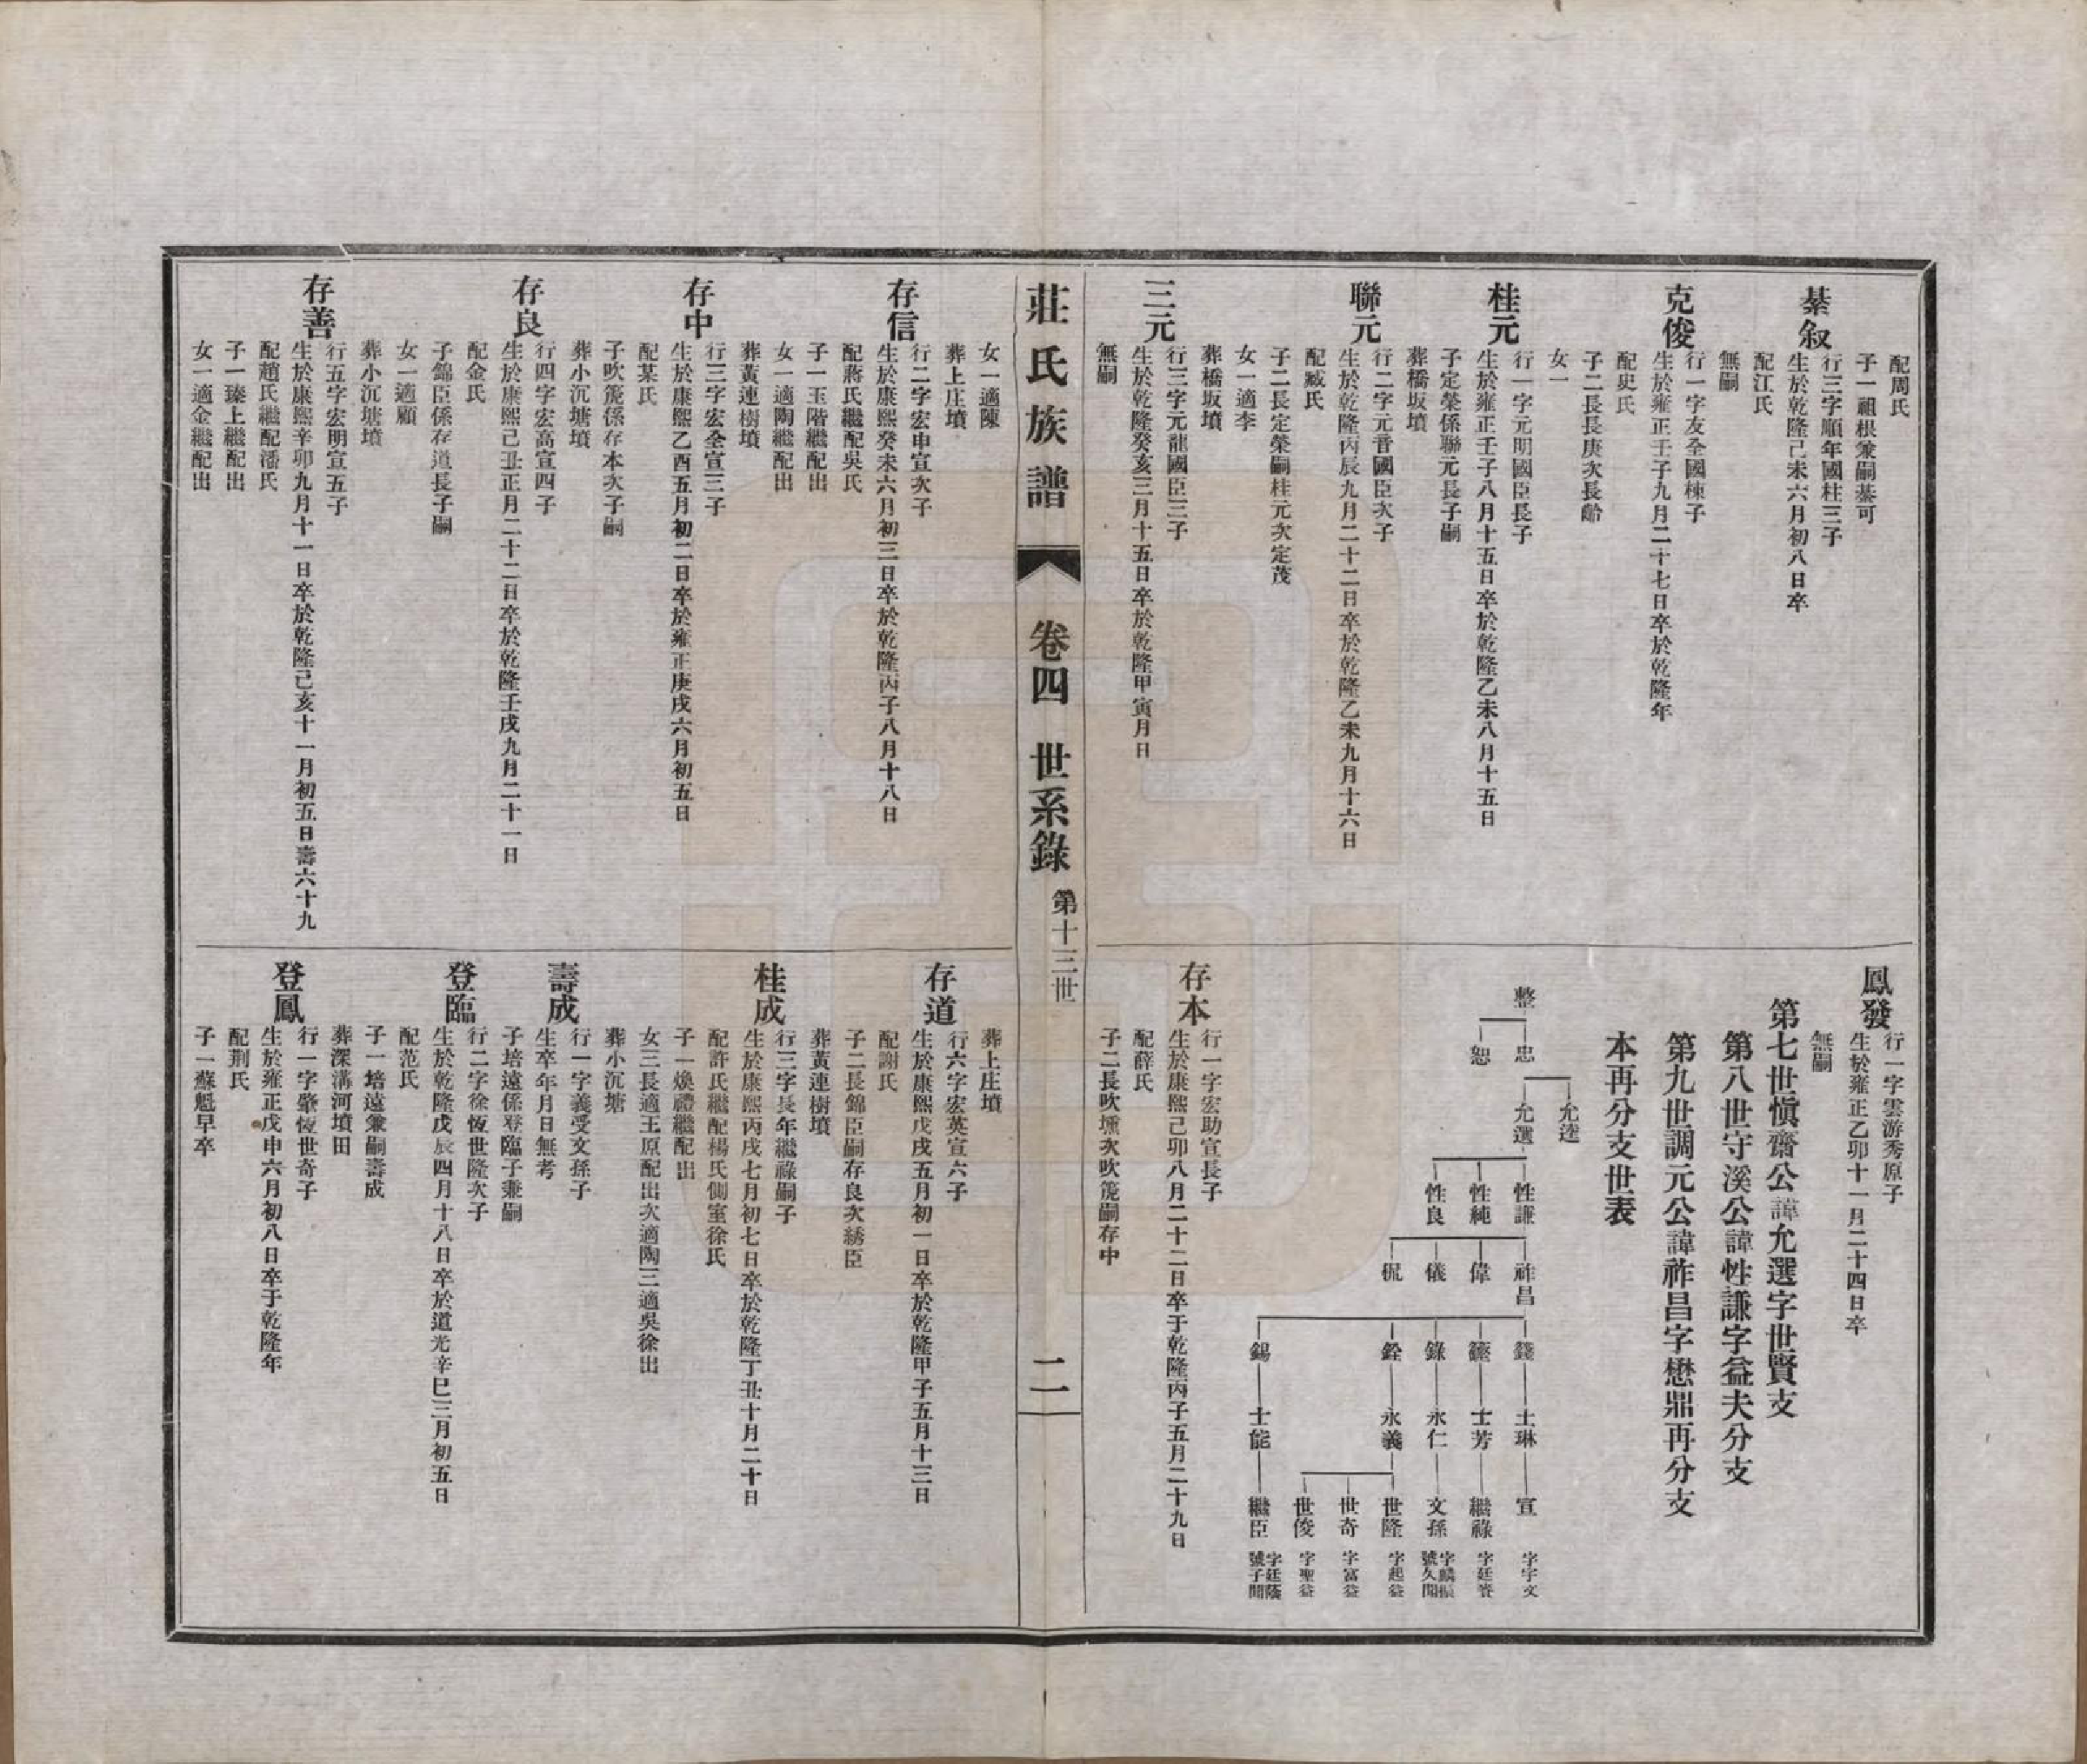 配周氏
子一祖根兼嗣棊可
棊叙
行三字順年國柱三子
生於乾隆己未六月初八日卒
配江氏
無嗣
克俊
行一字友全國棟子
生於雍正壬子九月二十七日卒於乾隆年
配史氏
子二長長庚次長齡
女一
桂元
行一字元明國臣長子
生於雍正壬子八月十五日卒於乾隆乙未八月十五日
子定榮係聯元長子嗣
葬橋坂墳
聯元
行二字元音國臣次子
生於乾隆丙辰九月二十二日卒於乾隆乙未九月十六日
配臧氏
子二長定榮嗣桂元次定茂
女一適李
葬橋坂墳
三元
行三字元龍國臣三子
生於乾隆癸亥三月十五日卒於乾隆甲寅月日
無嗣
鳳發
行一字雲游秀原子
生於雍正乙卯十一月二十四日卒
無嗣
第七世愼齋公諱允選字世賢支
第八世守溪公諱性謙字益夫分支
第九世調元公諱祚昌字懋鼎再分支
本再分支世表
整
忠 恕
允逵 允選
性謙 性純 性良
祚昌 偉 儀 侃
錢 籛 錄 銓 錫
士琳 士芳 永仁 永義 士能
宣 繼祿 文孫 世隆 世奇 世俊 繼臣
字宇文
字廷簪
字麟振號久閒
字起益
字富益
字聖益
字廷蔭號子閒
存本
行一字宏助宣長子
生於康熙己卯八月二十二日卒于乾隆丙子五月二十九日
配薛氏
子二長吹壎次吹篪嗣存中
莊氏族譜 卷四 世系錄 第十三世 二
女一適陳
葬上庄墳
存信
行二字宏申宣次子
生於康熙癸未六月初三日卒於乾隆丙子八月十八日
配蔣氏繼配吳氏
子一玉階繼配出
女一適陶繼配出
葬黃連樹墳
存中
行三字宏全宣三子
生於康熙乙酉五月初二日卒於雍正庚戌六月初五日
配某氏
子吹篪係存本次子嗣
葬小沉塘墳
存良
行四字宏高宣四子
生於康熙己丑正月二十二日卒於乾隆壬戌九月二十一日
配金氏
子錦臣係存道長子嗣
女一適顧
葬小沉塘墳
存善
行五字宏明宣五子
生於康熙辛卯九月十一日卒於乾隆己亥十一月初五日壽六十九
配趙氏繼配潘氏
子一臻上繼配出
女一適金繼配出
葬上庄墳
存道
行六字宏英宣六子
生於康熙戊戌五月初一日卒於乾隆甲子五月十三日
配謝氏
子二長錦臣嗣存良次綉臣
葬黃連樹墳
桂成
行三字長年繼祿嗣子
生於康熙丙戌七月初七日卒於乾隆丁丑十月二十日
配許氏繼配楊氏側室徐氏
子一煥禮繼配出
女三長適王原配出次適陶三適吳徐出
葬小沉塘
壽成
行一字義受文孫子
生卒年月日無考
子培遠係登臨子兼嗣
登臨
行二字徐恆世隆次子
生於乾隆戊辰四月十八日卒於道光辛巳三月初五日
配范氏
子一培遠兼嗣壽成
葬深溝河墳田
登鳳
行一字肇恆世奇子
生於雍正戊申六月初八日卒于乾隆年
配荆氏
子一蘇魁早卒